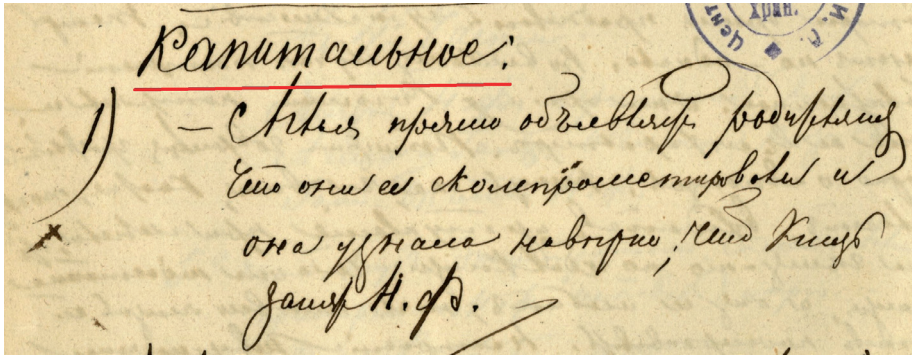 Хран.
Цент
Капитальное:
1) — Аглая прямо объявляетъ родителямъ
что они ее скомпрометировали и
она узнала навѣрно, что Князь
занятъ Н. Ф.